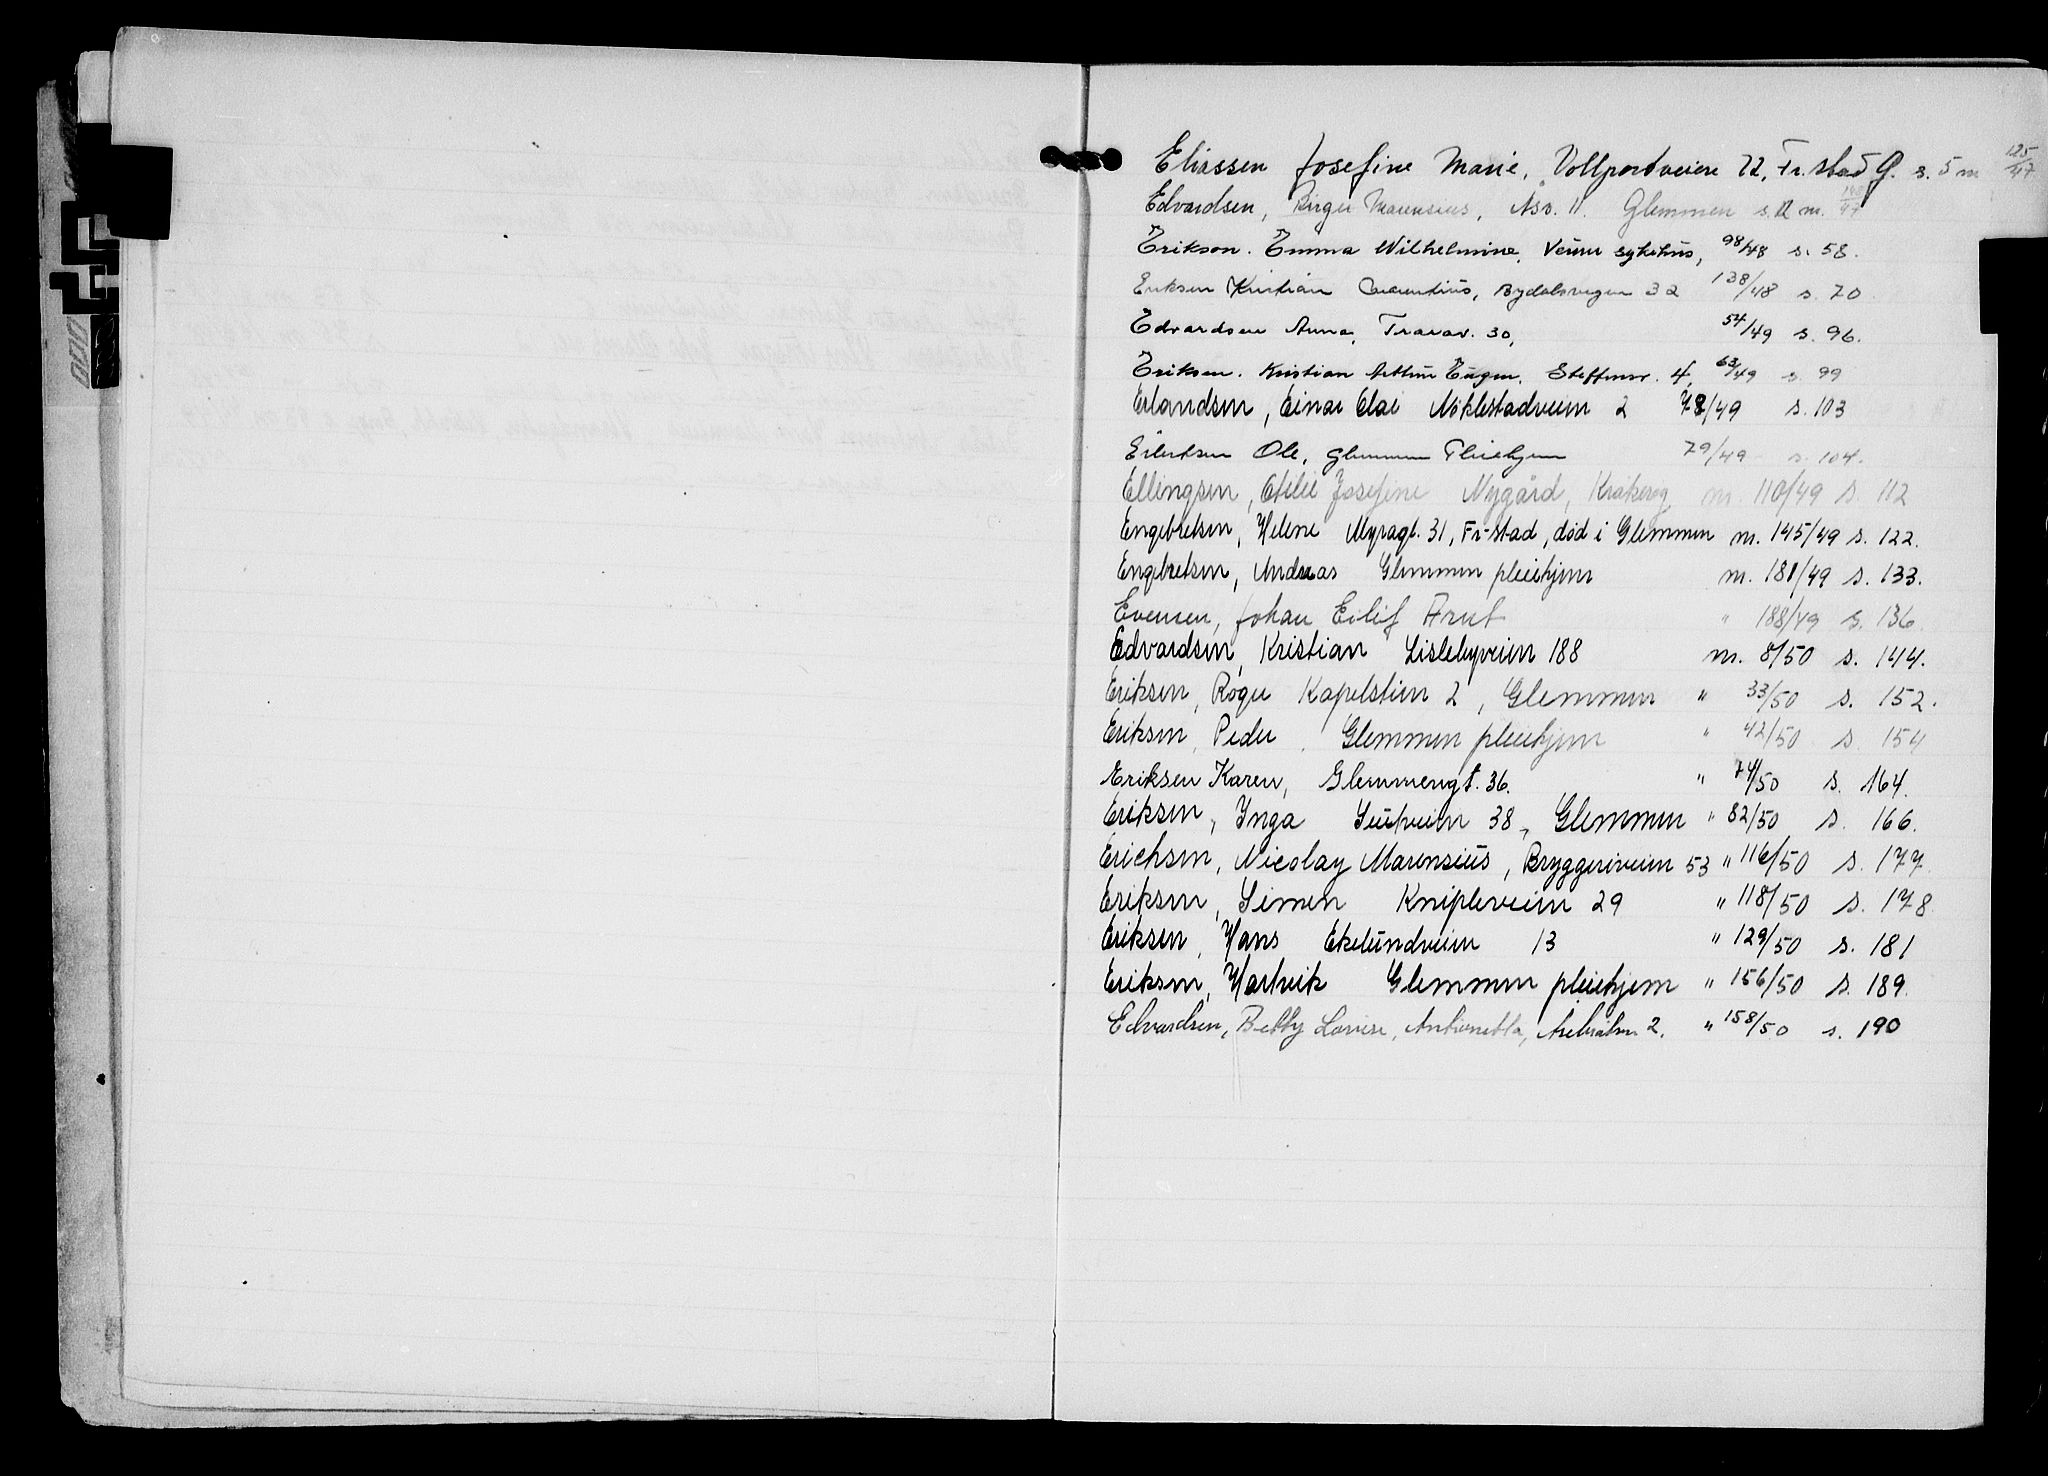 Eliassen Josefine Marie, Vollportveien 22, Fr.stad G. s. 5 m 125/47
Edvardsen, Birger Marensius, Asv. 11. Glemmen s. 12 m.
Erikson. Emma Wilhelmine, Veum sykehus, 98/48 s. 58.
Eriksen Kristian Laurentius, Bydalsvegen 32 138/48 s. 70
Edvardsen Anna, Trarav. 30, 54/49 s. 96.
Eriksen. Kristian Arthur Eugen. Steffensv. 4, 63/49 s. 99
Erlandsen, Einar Elai Nøklestadveien 2 78/49 s. 103
Eilertsen Ole, Glemmen Pleiehjem 79/49 s. 104.
Ellingsen, Otelie Josefine Nygård, Kråkerøy m. 110/49 s. 112
Engebretsen, Helene Nyragt. 31, Fr-stad, død i Glemmen m. 145/49 s. 122.
Engebretsen, Andreas Glemmen pleiehjem m. 181/49 s. 133.
Evensen, Johan Eilif Arnt " 188/49 s. 136
Edvardsen, Kristian Lislebyveien 188 m. 8/50 s. 144.
Eriksen, Roger Kapelstien 2, Glemmen " 33/50 s. 152.
Eriksen, Peder, Glemmen pleiehjem " 42/50 s. 154
Eriksen Karen, Glemmengt. 36. " 74/50 s. 164.
Eriksen, Inga 38, Glemmen " 82/50 s. 166.
Erichsen, Nicolay Marensius, Bryggeriveien 53 " 116/50 s. 177
Eriksen, Simen Knipleveien 29 " 118/50 s. 178
Eriksen, Hans Ekelundveien 13 " 129/50 s. 181
Eriksen, Hartvik Glemmen pleiehjem " 156/50 s. 189.
Edvardsen, Betty Lovise, Antionetta, 2. " 158/50 s. 190